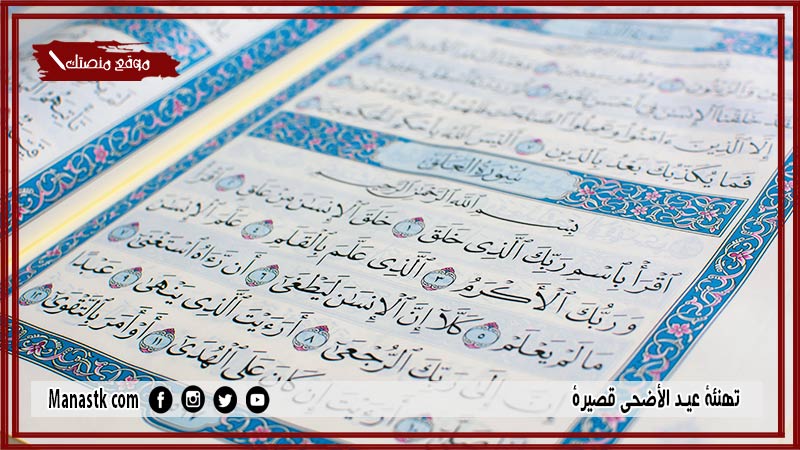 موقع منصتك
وَٱلزَّيْتُونِ
خَلَقْنَا ٱلْإِنسَٰنَ فِىٓ أَحْسَنِ تَقْوِيمٍ
إِلَّا ٱلَّذِينَ ءَامَنُوا۟ وَعَمِلُوا۟ ٱلصَّٰلِحَٰتِ فَلَهُمْ أَجْرٌ غَيْرُ مَمْنُونٍ
فَمَا يُكَذِّبُكَ بَعْدُ بِٱلدِّينِ ٧ أَلَيْسَ ٱللَّهُ بِأَحْكَمِ ٱلْحَٰكِمِينَ
سُورَةُ الْعَلَقِ
بِسْمِ ٱللَّهِ ٱلرَّحْمَٰنِ ٱلرَّحِيمِ
ٱقْرَأْ بِٱسْمِ رَبِّكَ ٱلَّذِى خَلَقَ ١ خَلَقَ ٱلْإِنسَٰنَ مِنْ عَلَقٍ ٢ ٱقْرَأْ
وَرَبُّكَ ٱلْأَكْرَمُ ٣ ٱلَّذِى عَلَّمَ بِٱلْقَلَمِ ٤ عَلَّمَ ٱلْإِنسَٰنَ
مَا لَمْ يَعْلَمْ ٥ كَلَّآ إِنَّ ٱلْإِنسَٰنَ لَيَطْغَىٰٓ ٦ أَن رَّءَاهُ ٱسْتَغْنَىٰٓ ٧
إِنَّ إِلَىٰ رَبِّكَ ٱلرُّجْعَىٰٓ ٨ أَرَءَيْتَ ٱلَّذِى يَنْهَىٰ ٩ عَبْدًا
صَلَّىٰٓ ١٠ أَرَءَيْتَ إِن كَانَ عَلَى ٱلْهُدَىٰٓ ١١ أَوْ أَمَرَ بِٱلتَّقْوَىٰٓ ١٢
تهنئة عيد الأضحى قصيرة
Manastk com